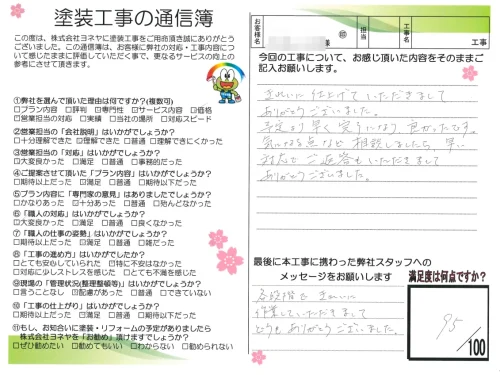 塗装工事の通信簿
この度は、株式会社ヨネヤに塗装工事をご用命頂き誠にありがとう
ございました。この通信簿は、お客様に弊社の対応・工事内容に
ついて感じたままに評価していただく事で、更なるサービスの向上の
参考にさせて頂きます。
①弊社を選んで頂いた理由は何ですか?(複数可)
□プラン内容 □評判 ☑専門性 ☑サービス内容 □価格
☑営業担当の対応 □実績 □当社の場所 ☑対応スピード
②営業担当の「会社説明」はいかがでしょうか?
□十分理解できた ☑理解できた □普通 □理解できにくかった
③営業担当の「対応」はいかがでしょうか?
☑大変良かった □満足 □普通 □事務的だった
④ご提案させて頂いた「プラン内容」はいかがでしょうか?
□期待以上だった ☑満足 □普通 □期待以下だった
⑤プラン内容に「専門家の意見」はありましたでしょうか?
□かなりあった ☑十分あった □普通 □殆んどなかった
⑥「職人の対応」はいかがでしょうか?
☑大変良かった □満足 □普通 □良くなかった
⑦「職人の仕事の姿勢」はいかがでしょうか?
□期待以上だった ☑満足 □普通 □雑だった
⑧「工事の進め方」はいかがでしたか?
□とても安心していられた ☑特に不安はなかった
□対応に少しストレスを感じた □とても不満を感じた
⑨現場の「管理状況(整理整頓等)」はいかがでしょうか?
□言うことなし ☑配慮があった □できていない
⑩「工事の仕上がり」はいかがでしょうか?
□期待以上だった ☑満足 □普通 □期待以下だった
⑪もし、お知合いに塗装・リフォームの予定がありましたら
株式会社ヨネヤを「お勧め」頂けますでしょうか?
☑ぜひ勧めたい □勧めてもいい □わからない □勧められない
お客様名
㊞
担当
工事名
工事
今回の工事について、お感じ頂いた内容をそのままご
記入お願いします。
きれいに仕上げていただきまして
ありがとうございました。
予定より早く終りになり、良かったです。
気になる点など相談しましたら、早い
対応でご返答もいただきまして
ありがとうございました。
最後に本工事に携わった弊社スタッフへの
メッセージをお願いします
各段階できれいに
作業していただきまして
どうもありがとうございました。
満足度は何点ですか?
95
/100